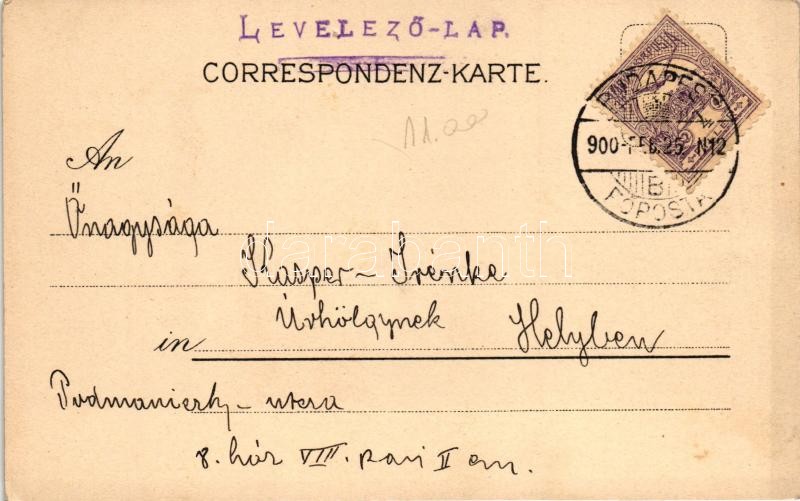 LEVELEZŐ-LAP.
CORRESPONDENZ-KARTE.
BUDAPEST
900 FEB. 25 N12
B
FŐPOSTA
11.00
An
Őnagysága
darabanth
Kasper-Irénke
Úrhölgynek Helyben
in
utcza
8. ház VIII. II em.